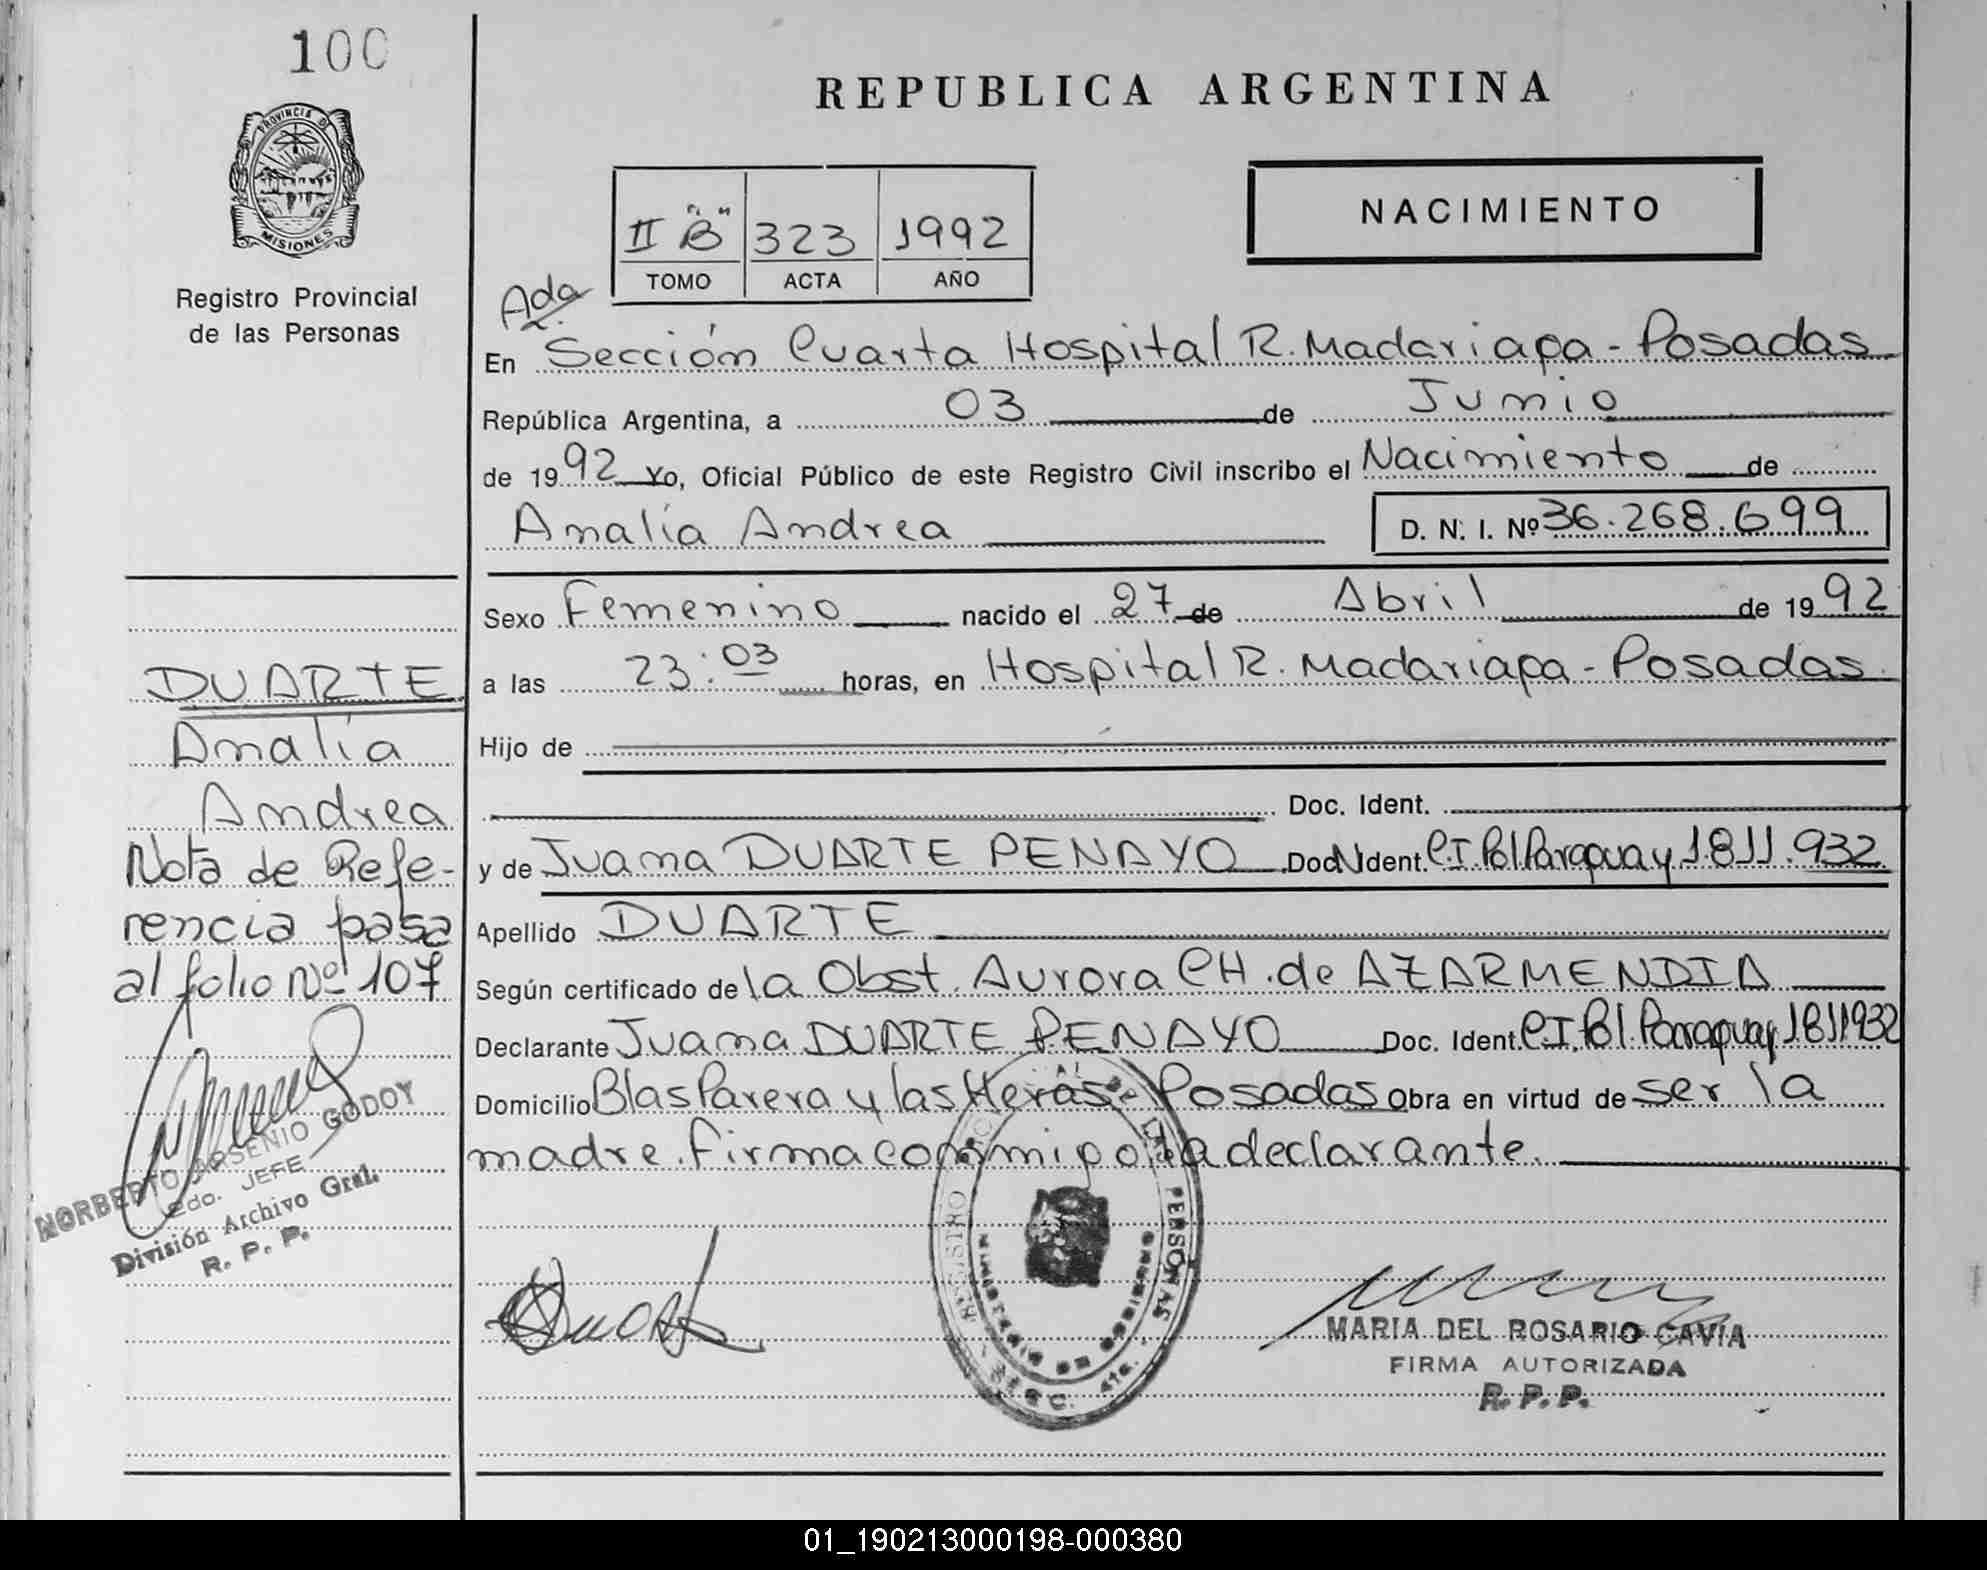 100
PROVINCIA DE
MISIONES
Registro Provincial
de las Personas
REPUBLICA ARGENTINA
NACIMIENTO
II "B" 323 1992
TOMO ACTA AÑO
Ada
En Sección Cuarta Hospital R. Madariapa - Posadas
República Argentina, a 03 de Junio
de 1992 Yo, Oficial Público de este Registro Civil inscribo el Nacimiento de
Analía Andrea D. N. I. Nº 36.268.699
Sexo Femenino nacido el 27 de Abril de 1992
a las 23:03 horas, en Hospital R. Madariapa - Posadas.
Hijo de
Doc. Ident.
y de Juana DUARTE PENAYO Doc. Ident. C.I. Pol Paraguay 1.811.932
Apellido DUARTE
Según certificado de la Obst. Aurora CH. de AZARMENDIA
Declarante Juana DUARTE PENAYO Doc. Ident. C.I. Pol. Paraguay 1811932
Domicilio Blas Parera y las Heras - Posadas Obra en virtud de ser la
madre. Firma conmigo la declarante.
DUARTE
Analía
Andrea
Nota de Refe-
rencia pasa
al folio Nº 107
NORBERTO ARSENIO GODOY
2do. JEFE
División Archivo Gral.
R. P. P.
REGISTRO PERSONAS
MINISTERIO DE GOBIERNO
MARIA DEL ROSARIO CAVIA
FIRMA AUTORIZADA
R. P. P.
01_190213000198-000380